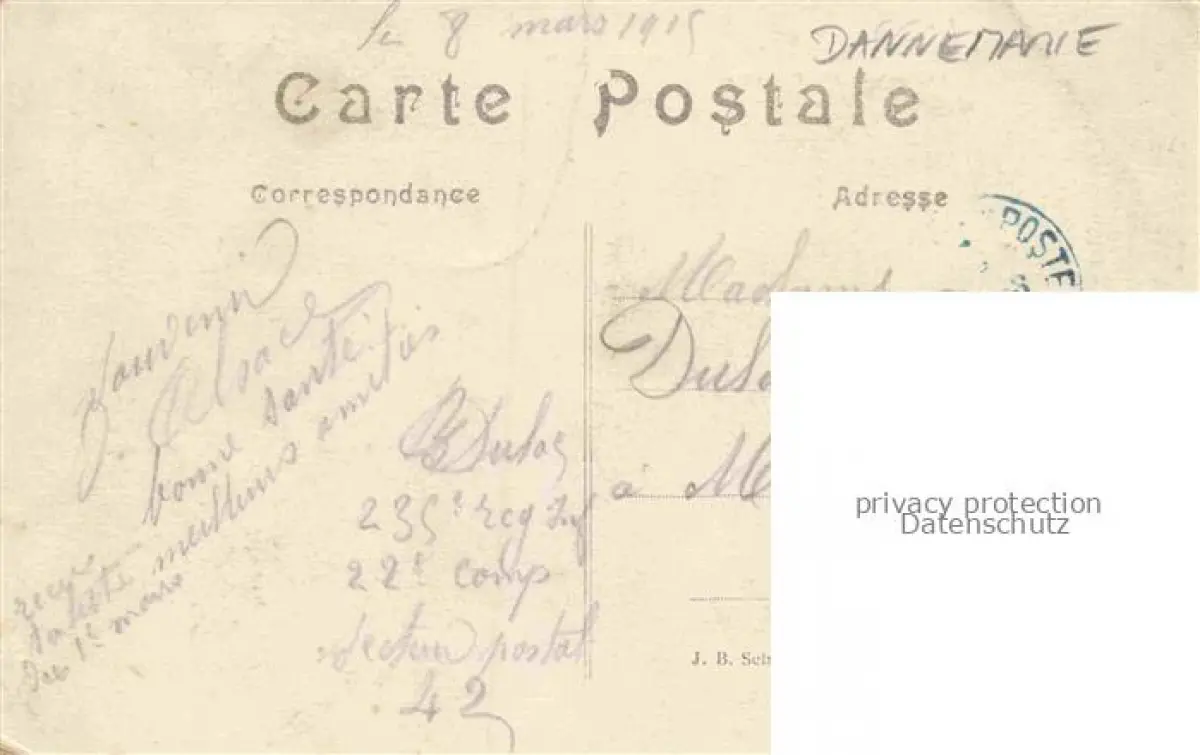 le 8 mars 1915
DANNEMARIE
Carte Postale
Correspondance
Adresse
POSTE
Souvenir
d'Alsace
bonne santé
meilleurs amitiés
reçu
ta lettre
du 1e mars
Dulac
235e reg Inf
22e comp
secteur postal
42
Madame
à
J. B.
privacy protection
Datenschutz